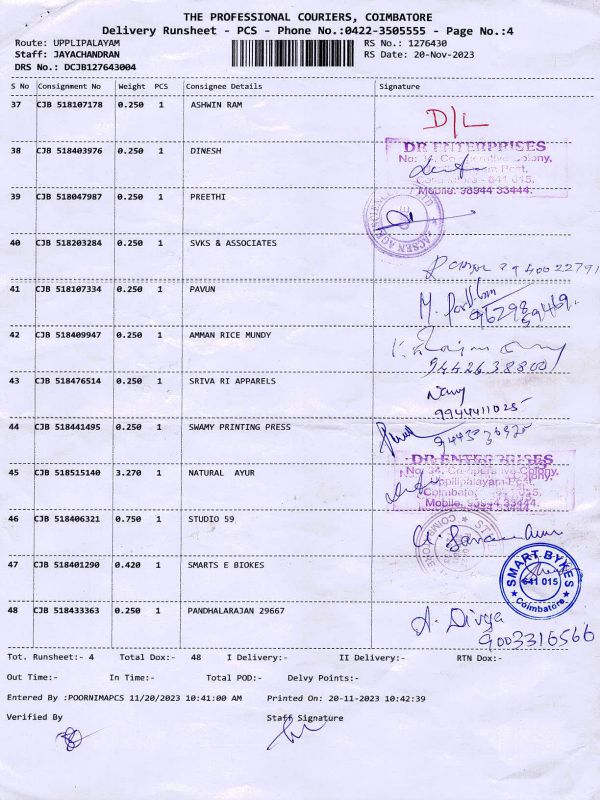 THE PROFESSIONAL COURIERS, COIMBATORE
Delivery Runsheet - PCS - Phone No.:0422-3505555 - Page No.:4
Route: UPPLIPALAYAM RS No.: 1276430
Staff: JAYACHANDRAN RS Date: 20-Nov-2023
DRS No.: DCJB127643004
S No Consignment No Weight PCS Consignee Details Signature
37 CJB 518107178 0.250 1 ASHWIN RAM
D/L
38 CJB 518403976 0.250 1 DINESH
DR ENTERPRISES
Coimbatore - 641 015.
Mobile: 98944 33444.
39 CJB 518047987 0.250 1 PREETHI
40 CJB 518203284 0.250 1 SVKS & ASSOCIATES
9940022791
41 CJB 518107334 0.250 1 PAVUN
M.
9629859469.
42 CJB 518409947 0.250 1 AMMAN RICE MUNDY
9442638800
43 CJB 518476514 0.250 1 SRIVA RI APPARELS
9944411025
44 CJB 518441495 0.250 1 SWAMY PRINTING PRESS
45 CJB 518515140 3.270 1 NATURAL AYUR
DR ENTERPRISES
No: 34, Co-operative Colony,
Uppilipalayam Post,
Coimbatore - 641 015.
Mobile: 98944 33444
46 CJB 518406321 0.750 1 STUDIO 59
COIMBATORE
47 CJB 518401290 0.420 1 SMARTS E BIOKES
SMART BYKES
641 015
Coimbatore
48 CJB 518433363 0.250 1 PANDHALARAJAN 29667
A. Divya
9003316566
Tot. Runsheet:- 4 Total Dox:- 48 I Delivery:- II Delivery:- RTN Dox:-
Out Time:- In Time:- Total POD:- Delvy Points:-
Entered By :POORNIMAPCS 11/20/2023 10:41:00 AM Printed On: 20-11-2023 10:42:39
Verified By Staff Signature